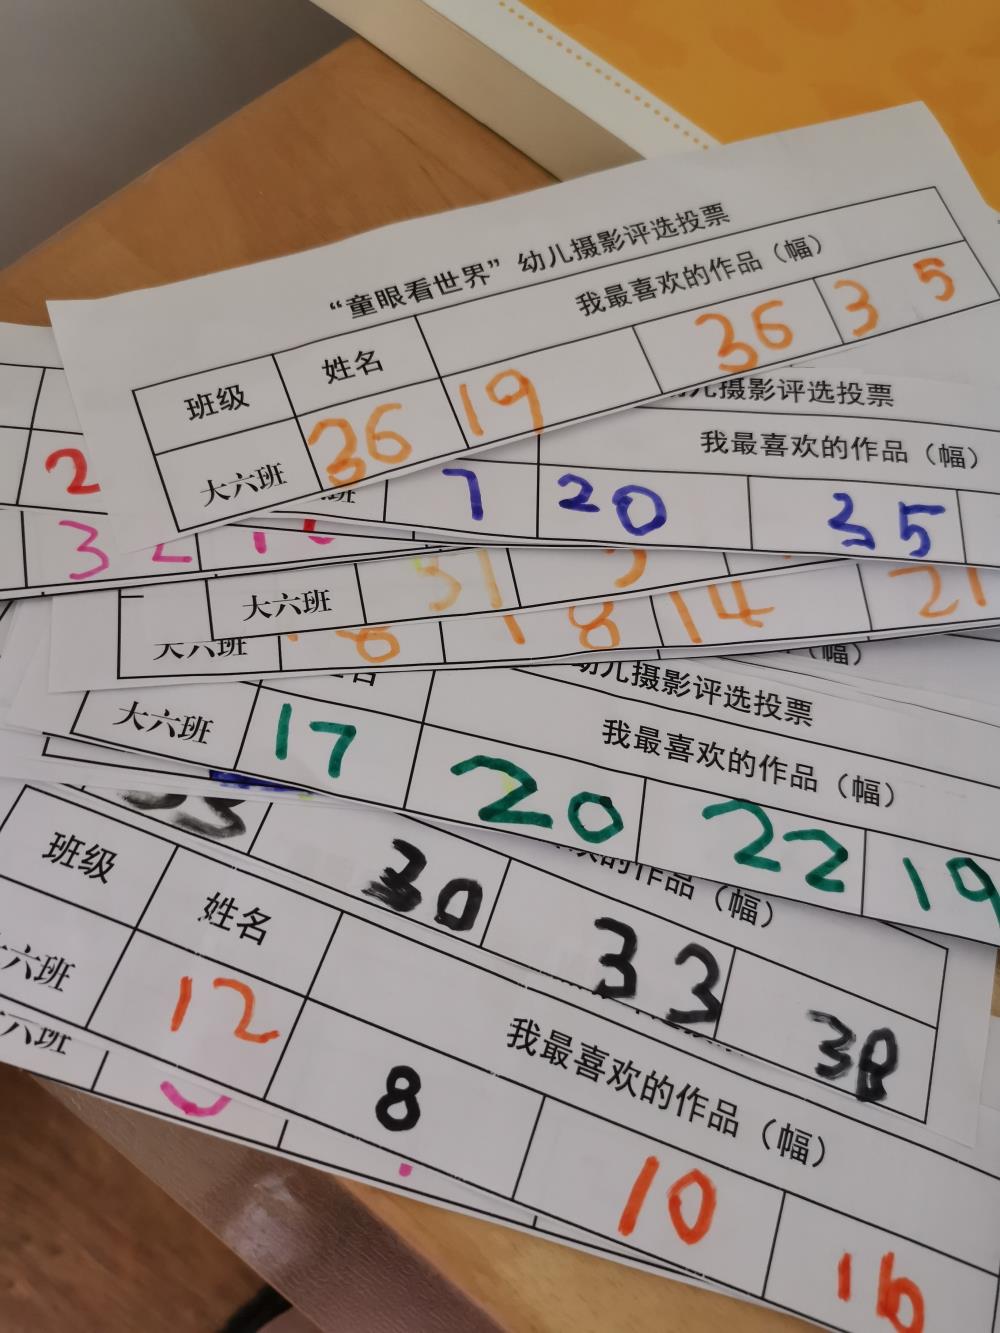 “童眼看世界”幼儿摄影评选投票
班级 姓名 我最喜欢的作品（幅）
大六班 36 19 36 35
幼儿摄影评选投票
我最喜欢的作品（幅）
班 7 20 35
2
32
大六班 31
大六班 8 18 14 21
（幅）
幼儿摄影评选投票
我最喜欢的作品（幅）
大六班 17 20 22 19
欢的作品（幅）
30 33 38
班级 姓名 我最喜欢的作品（幅）
六班 12 8 10 16
六班